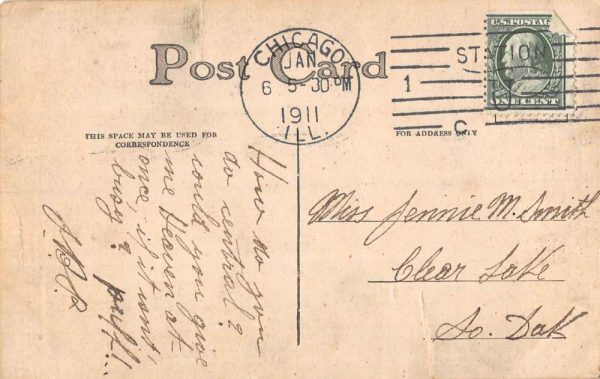 Post Card
CHICAGO
JAN
6 5-30 PM
1911
ILL.
1
STATION
C
U.S. POSTAGE
ONE CENT
THIS SPACE MAY BE USED FOR
CORRESPONDENCE
FOR ADDRESS ONLY
How do you
do central?
could you give
me Heaven at
once, is it isn't
busy?
Miss Jennie M. Smith
Clear Lake
So. Dak